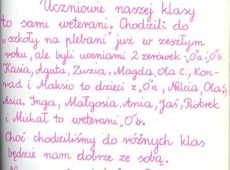 Uczniowie naszej klasy
to sami weterani. Chodzili do
"szkoły na plebani" już w zeszłym
roku, ale byli uczniami 2 zerówek „O"a i „O"b.
Kasia, Agata, Zuzia, Magda, Ola C., Kon-
rad i Maksio to dzieci z „O"a, Nelcia, Ola S,
Asia, Inga, Małgosia, Ania, Jaś, Piotrek
i Michał to weterani „O"b.
Choć chodziliśmy do różnych klas
będzie nam dobrze ze sobą.